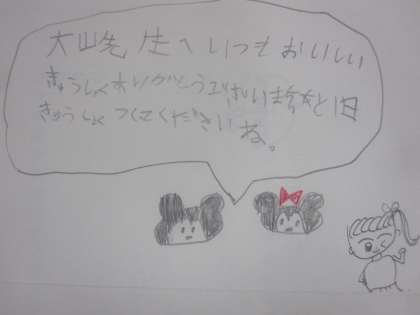 大山先生へいつもおいしい
きゅうしょくありがとうございます
きゅうしょくつくってくださいね。